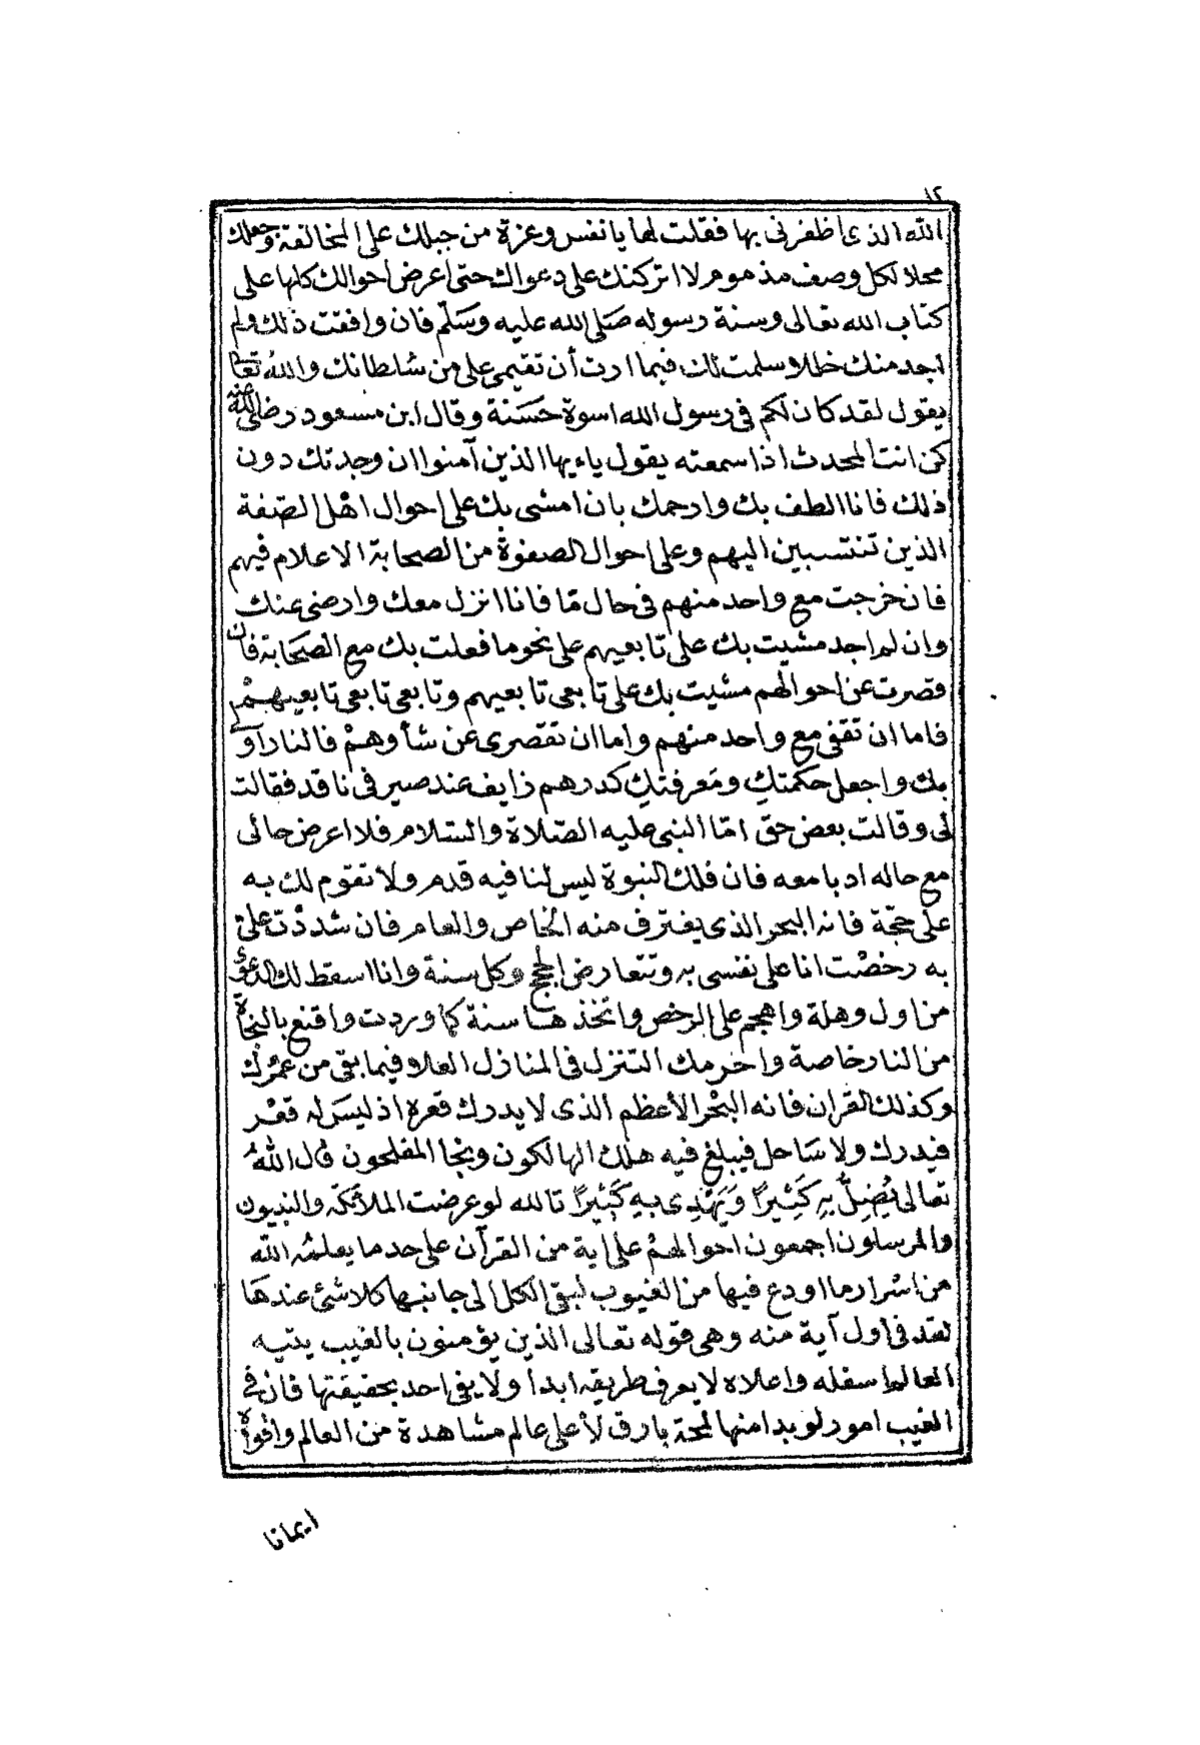 ١٢
الله الذى اظفرنى بها فقلت لها يا نفس وعزة من جبلك على المخالفة وجعلك
محلا لكل وصف مذموم لا اتركنك على دعواك حتى اعرض احوالك كلها على
كتاب الله تعالى وسنة رسوله صلى الله عليه وسلّم فان وافقت ذلك ولم
اجد منك خللا وسلمت لك فيما اردت أن تقيمى على من شلطانك والله تعالى
يقول لقد كان لكم فى رسول الله اسوة حسنة وقال ابن مسعود رضى الله عنه
كن انت المحدث اذا سمعته يقول ياءيها الذين آمنوا ان وجدتك دون
ذلك فانا الطف بك وارحمك بان امشى بك على احوال اهل الصّفة
الذين تنتسبين اليهم وعلى احوال الصفوة من الصحابة الاعلام فيهم
فان خرجت مع واحد منهم فى حال مّا فانا انزل معك وارضى عنك
وان لم اجد مشيت بك على تابعيهم على نحو ما فعلت بك مع الصحابة فان
قصرت عن احوالهم مشيت بك على تابعى تابعيهم وتابعى تابعى تابعيهمْ
فاما ان تقفى مع واحد منهم واما ان تقصرى عن شأوهمْ فالنار اولى
بك واجعل حكمتكِ ومَعرفتكِ كدرهم زايف عند صيرفى ناقد فقالت
لى وقالت بعض حق امّا النبى عليه الصّلاة والسّلام فلا اعرض حالى
مع حاله ادبا معه فان فلك النبوة ليس لنا فيه قدم ولا تقوم لك به
علىّ حجّة فانه البحر الذى يغترف منه الخاص والعام فان شددْتَ علىّ
به رخصْت انا على نفسى به وتتعارض الحجج وكل سنة وانا اسقط لك الدعوى
من اول وهلة واهجم على الرخص واتخذها سنة كما وردت واقنع بالنجاة
من النار خاصة واحرمك التنزل فى المنازل العلا فيما بقى من عمُرك
وكذلك القران فانه البحْر الأعظم الذى لا يدرك قعره اذ ليسَ له قعْر
فيدرك ولا سَاحل فيبلغ فيه هلك الهالكون ونجا المفلحون قال اللهُ
تعالى يُضِلُّ بِهِ كَثِيرًا وَيَهْدِى بِهِ كَثِيرًا تالله لو عرضت الملائكة والنبيون
والمرسلون اجمعون احْوالهمْ على اية من القرآن على حد ما يعلمُه الله
من اسْرار ما اودع فيها من الغيوب لبقى الكل الى جانبها كلا شئ عندهَا
لقد فى اول آية منه وهى قوله تعالى الذين يؤمنون بالغيب يتيه
العالم اسفله واعلاه لا يعرف طريقه ابدا ولا يفى احد بحقيقتها فان فى
الغيب امور لو بدا منها لمحة بارق لأعلى عالم مشاهدة من العالم واقواهُ
ايمانا